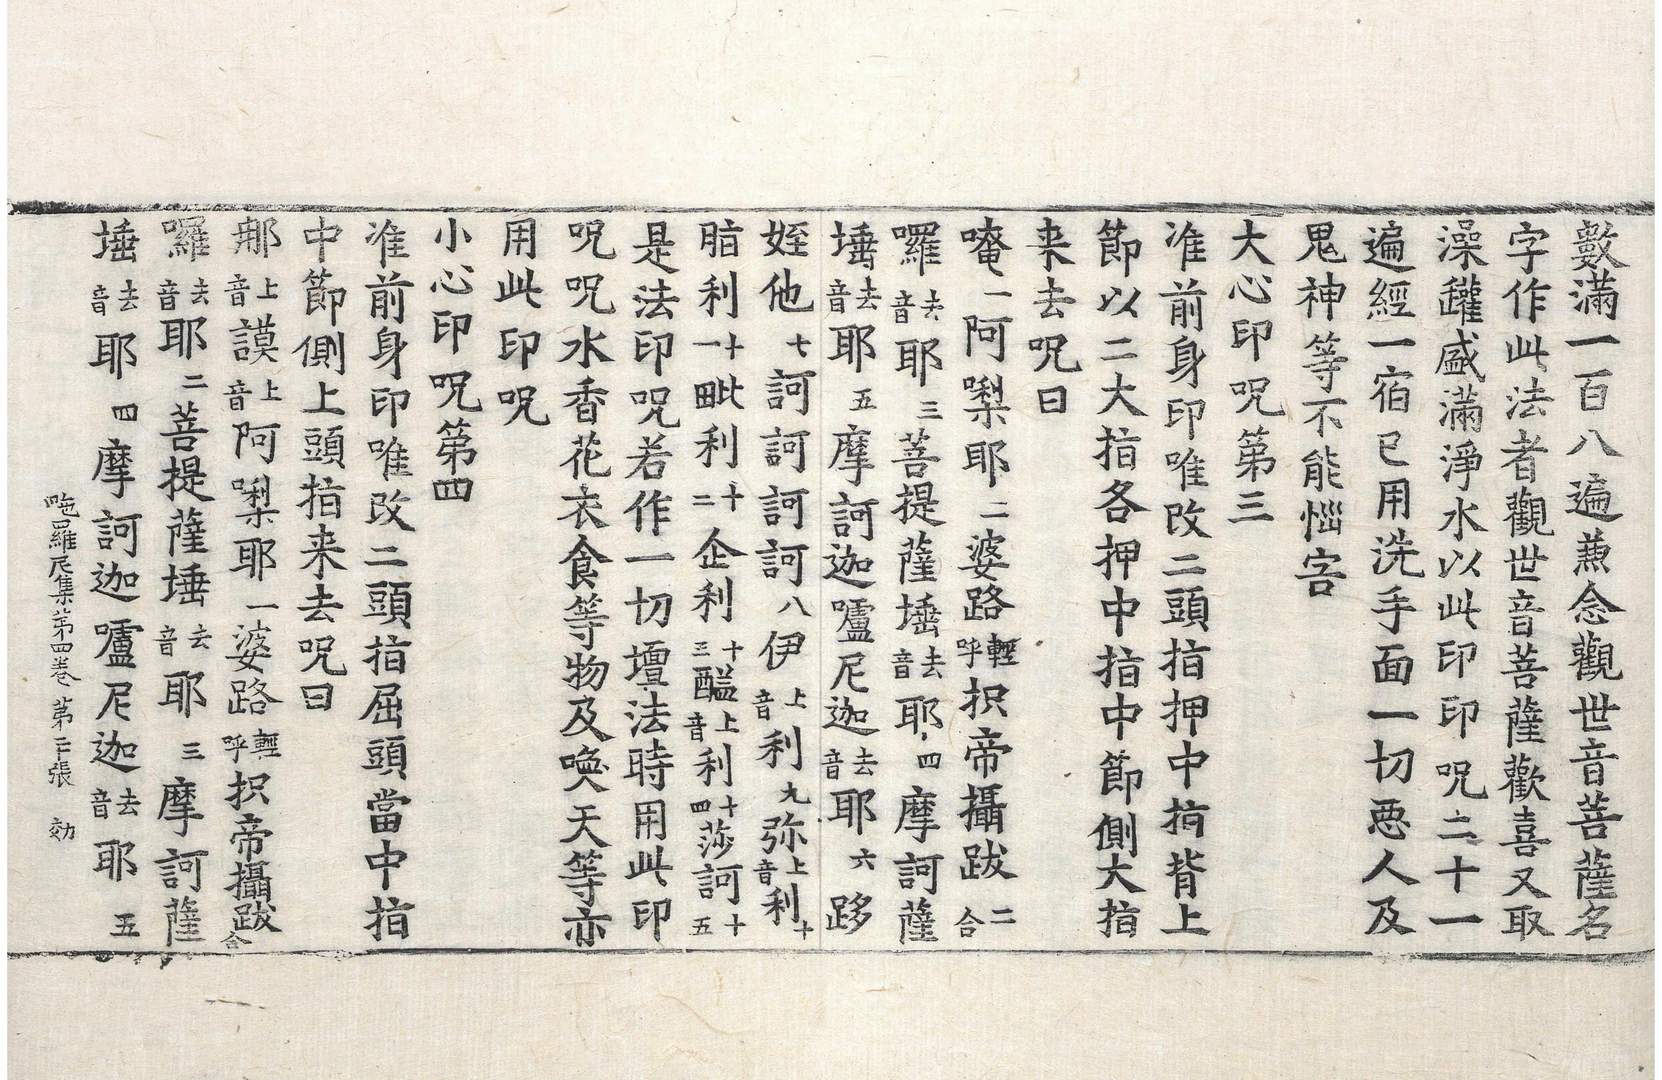 數滿一百八遍兼念觀世音菩薩名
字作此法者觀世音菩薩歡喜又取
澡罐盛滿淨水以此印印呪二十一
遍經一宿已用洗手面一切惡人及
鬼神等不能惱害
大心印呪第三
准前身印唯改二頭指押中指背上
節以二大指各押中指中節側大指
来去呪曰
唵一阿㗚耶二婆路輕呼抧帝攝跋二合
囉去音耶三菩提薩埵去音耶四摩訶薩
埵去音耶五摩訶迦嚧尼迦去音耶六跢
姪他七訶訶訶訶八伊上音利九弥上音利十
脂利十一毗利十二企利十三醯上音利十四莎訶十五
是法印呪若作一切壇法時用此印
呪呪水香花衣食等物及喚天等亦
用此印呪
小心印呪第四
准前身印唯改二頭指屈頭當中指
中節側上頭指来去呪曰
那上音謨上音阿㗚耶一婆路輕呼抧帝攝跋二合
囉去音耶二菩提薩埵去音耶三摩訶薩
埵去音耶四摩訶迦嚧尼迦去音耶五
陁羅尼集第四卷 第二十張 効